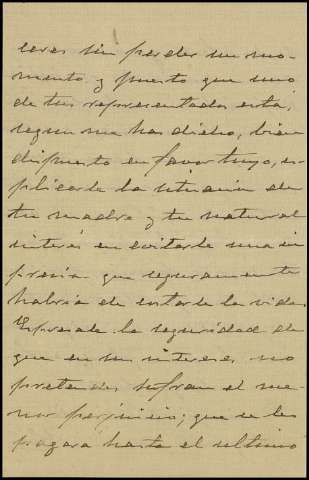 ceres sin perder un mo-
mento y puesto que uno
de tus representados está,
segun me has dicho, bien
dispuesto en favor tuyo, es-
plicarle la situacion de
tu madre y tu natural
interés en evitarle una im
presion que seguramente
habria de costarle la vida.
Espresale la seguridad de
que en sus intereses no
pretendes sufran el me-
nor perjuicio; que se les
pagará hasta el ultimo